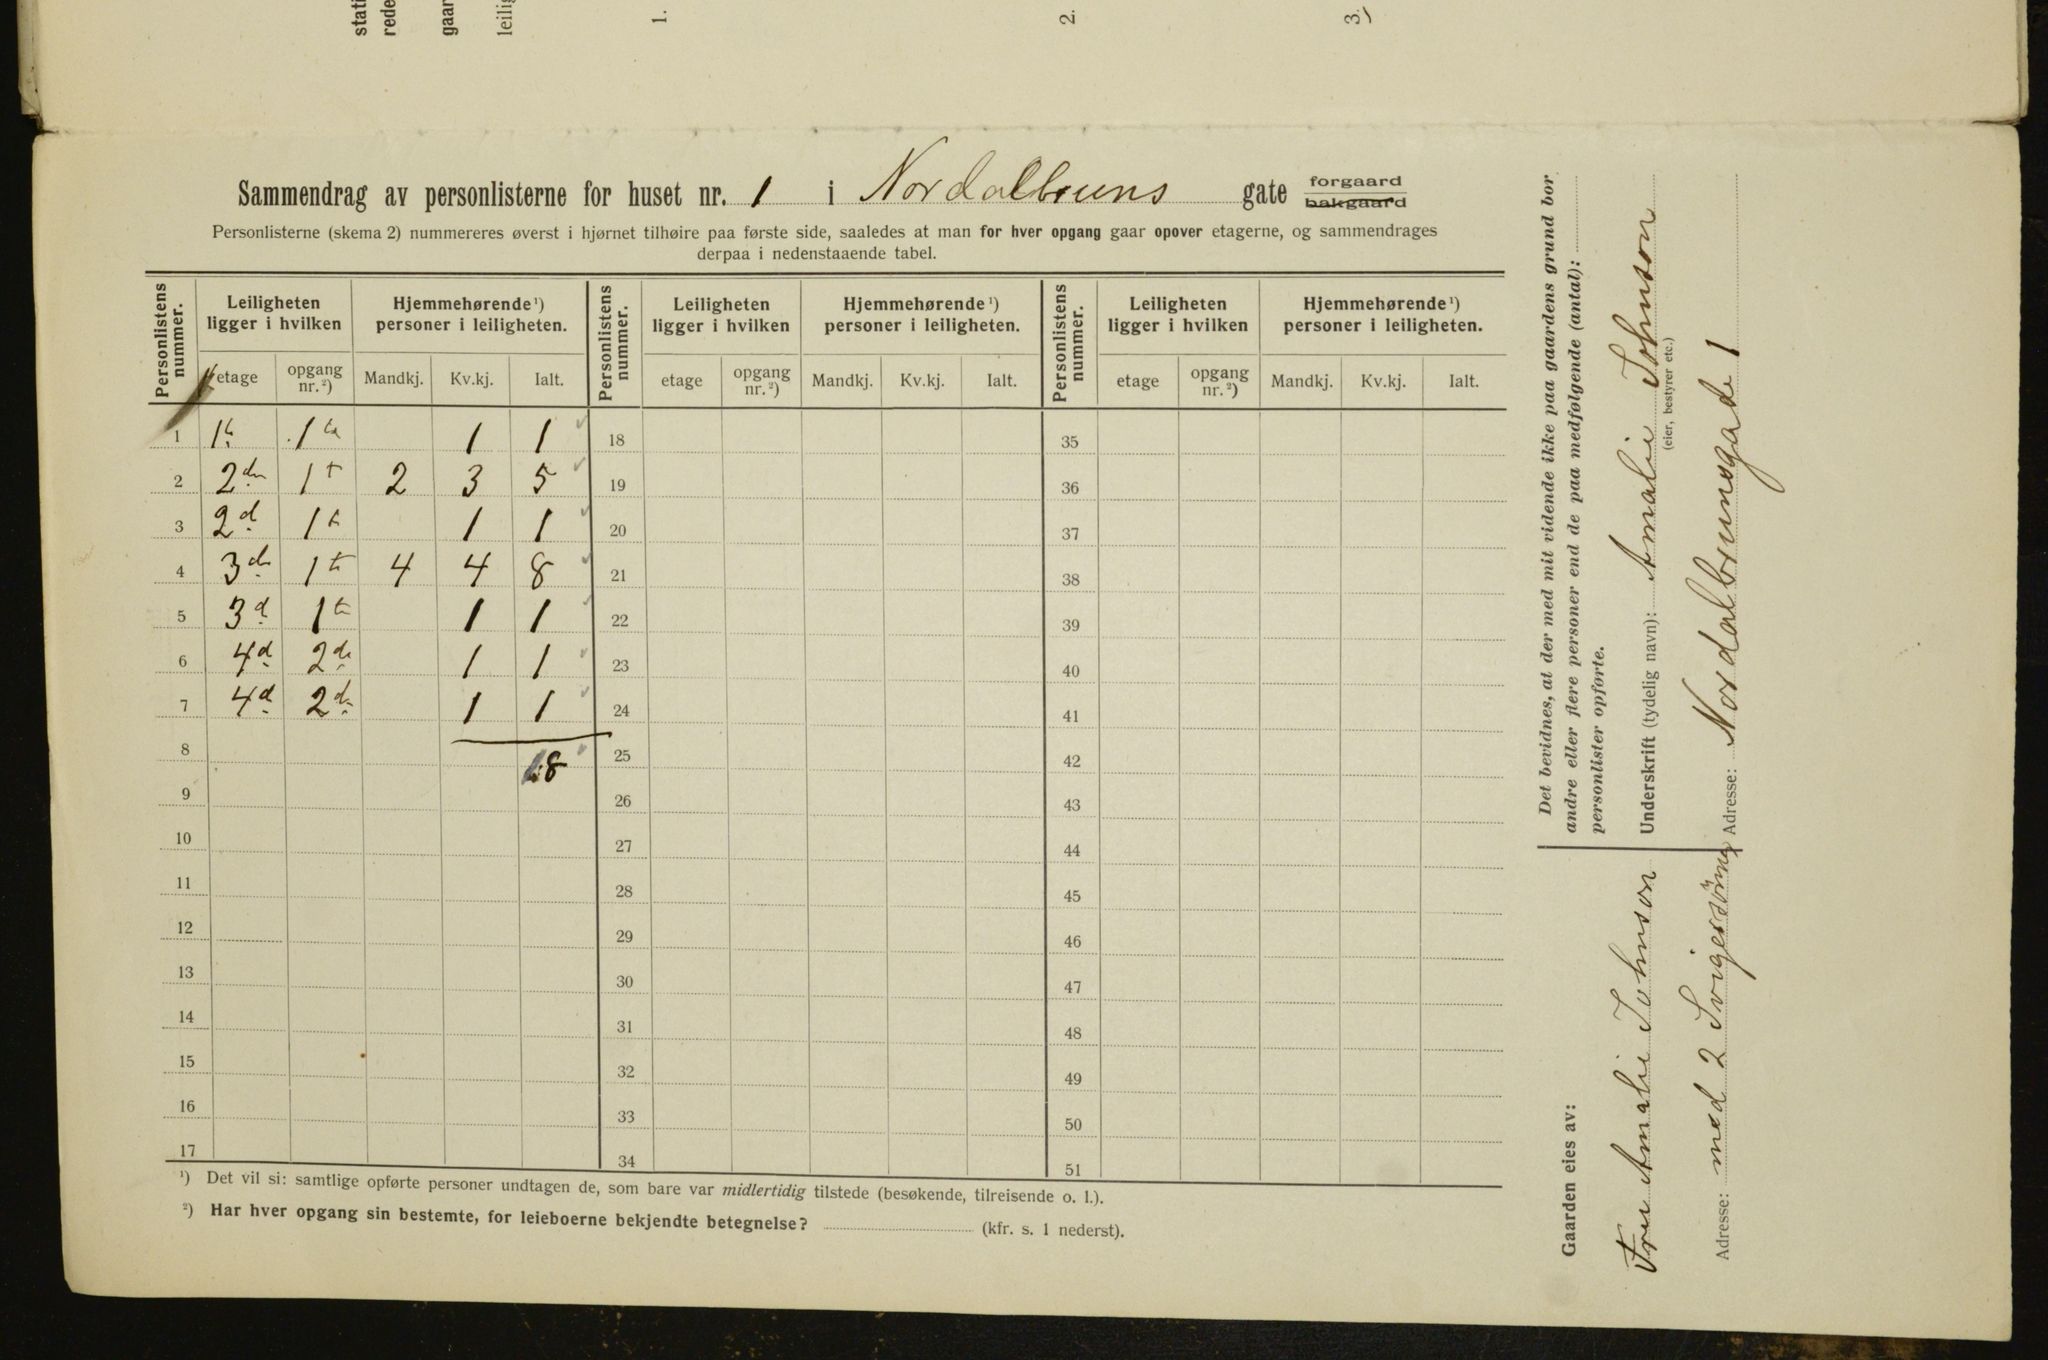 stati
rede
gaar
leilig
1.
2.
3.
Sammendrag av personlisterne for huset nr. 1 i Nordalbruns gate forgaard bakgaard
Personlisterne (skema 2) nummereres øverst i hjørnet tilhøire paa første side, saaledes at man for hver opgang gaar opover etagerne, og sammendrages
derpaa i nedenstaaende tabel.
Personlistens nummer. Leiligheten ligger i hvilken Hjemmehørende ¹) personer i leiligheten. Personlistens nummer. Leiligheten ligger i hvilken Hjemmehørende ¹) personer i leiligheten. Personlistens nummer. Leiligheten ligger i hvilken Hjemmehørende ¹) personer i leiligheten.
etage opgang nr.²) Mandkj. Kv.kj. Ialt. etage opgang nr.²) Mandkj. Kv.kj. Ialt. etage opgang nr.²) Mandkj. Kv.kj. Ialt.
1 1 1 1 1 18 35
2 2den 1t 2 3 5 19 36
3 2d 1t 1 1 20 37
4 3de 1te 4 4 8 21 38
5 3d 1te 1 1 22 39
6 4d 2de 1 1 23 40
7 4d 2de 1 1 24 41
8 18 25 42
9 26 43
10 27 44
11 28 45
12 29 46
13 30 47
14 31 48
15 32 49
16 33 50
17 34 51
¹) Det vil si: samtlige opførte personer undtagen de, som bare var midlertidig tilstede (besøkende, tilreisende o. l.).
²) Har hver opgang sin bestemte, for leieboerne bekjendte betegnelse? (kfr. s. 1 nederst).
Det bevidnes, at der med mit vidende ikke paa gaardens grund bor
andre eller flere personer end de paa medfølgende (antal):
personlister opførte.
Underskrift (tydelig navn): Amalie Johnson
(eier, bestyrer etc.)
Adresse: Nordalbrunsgade 1
Gaarden eies av:
Fru Amalie Johnson
Adresse: med 2 Svigersønner